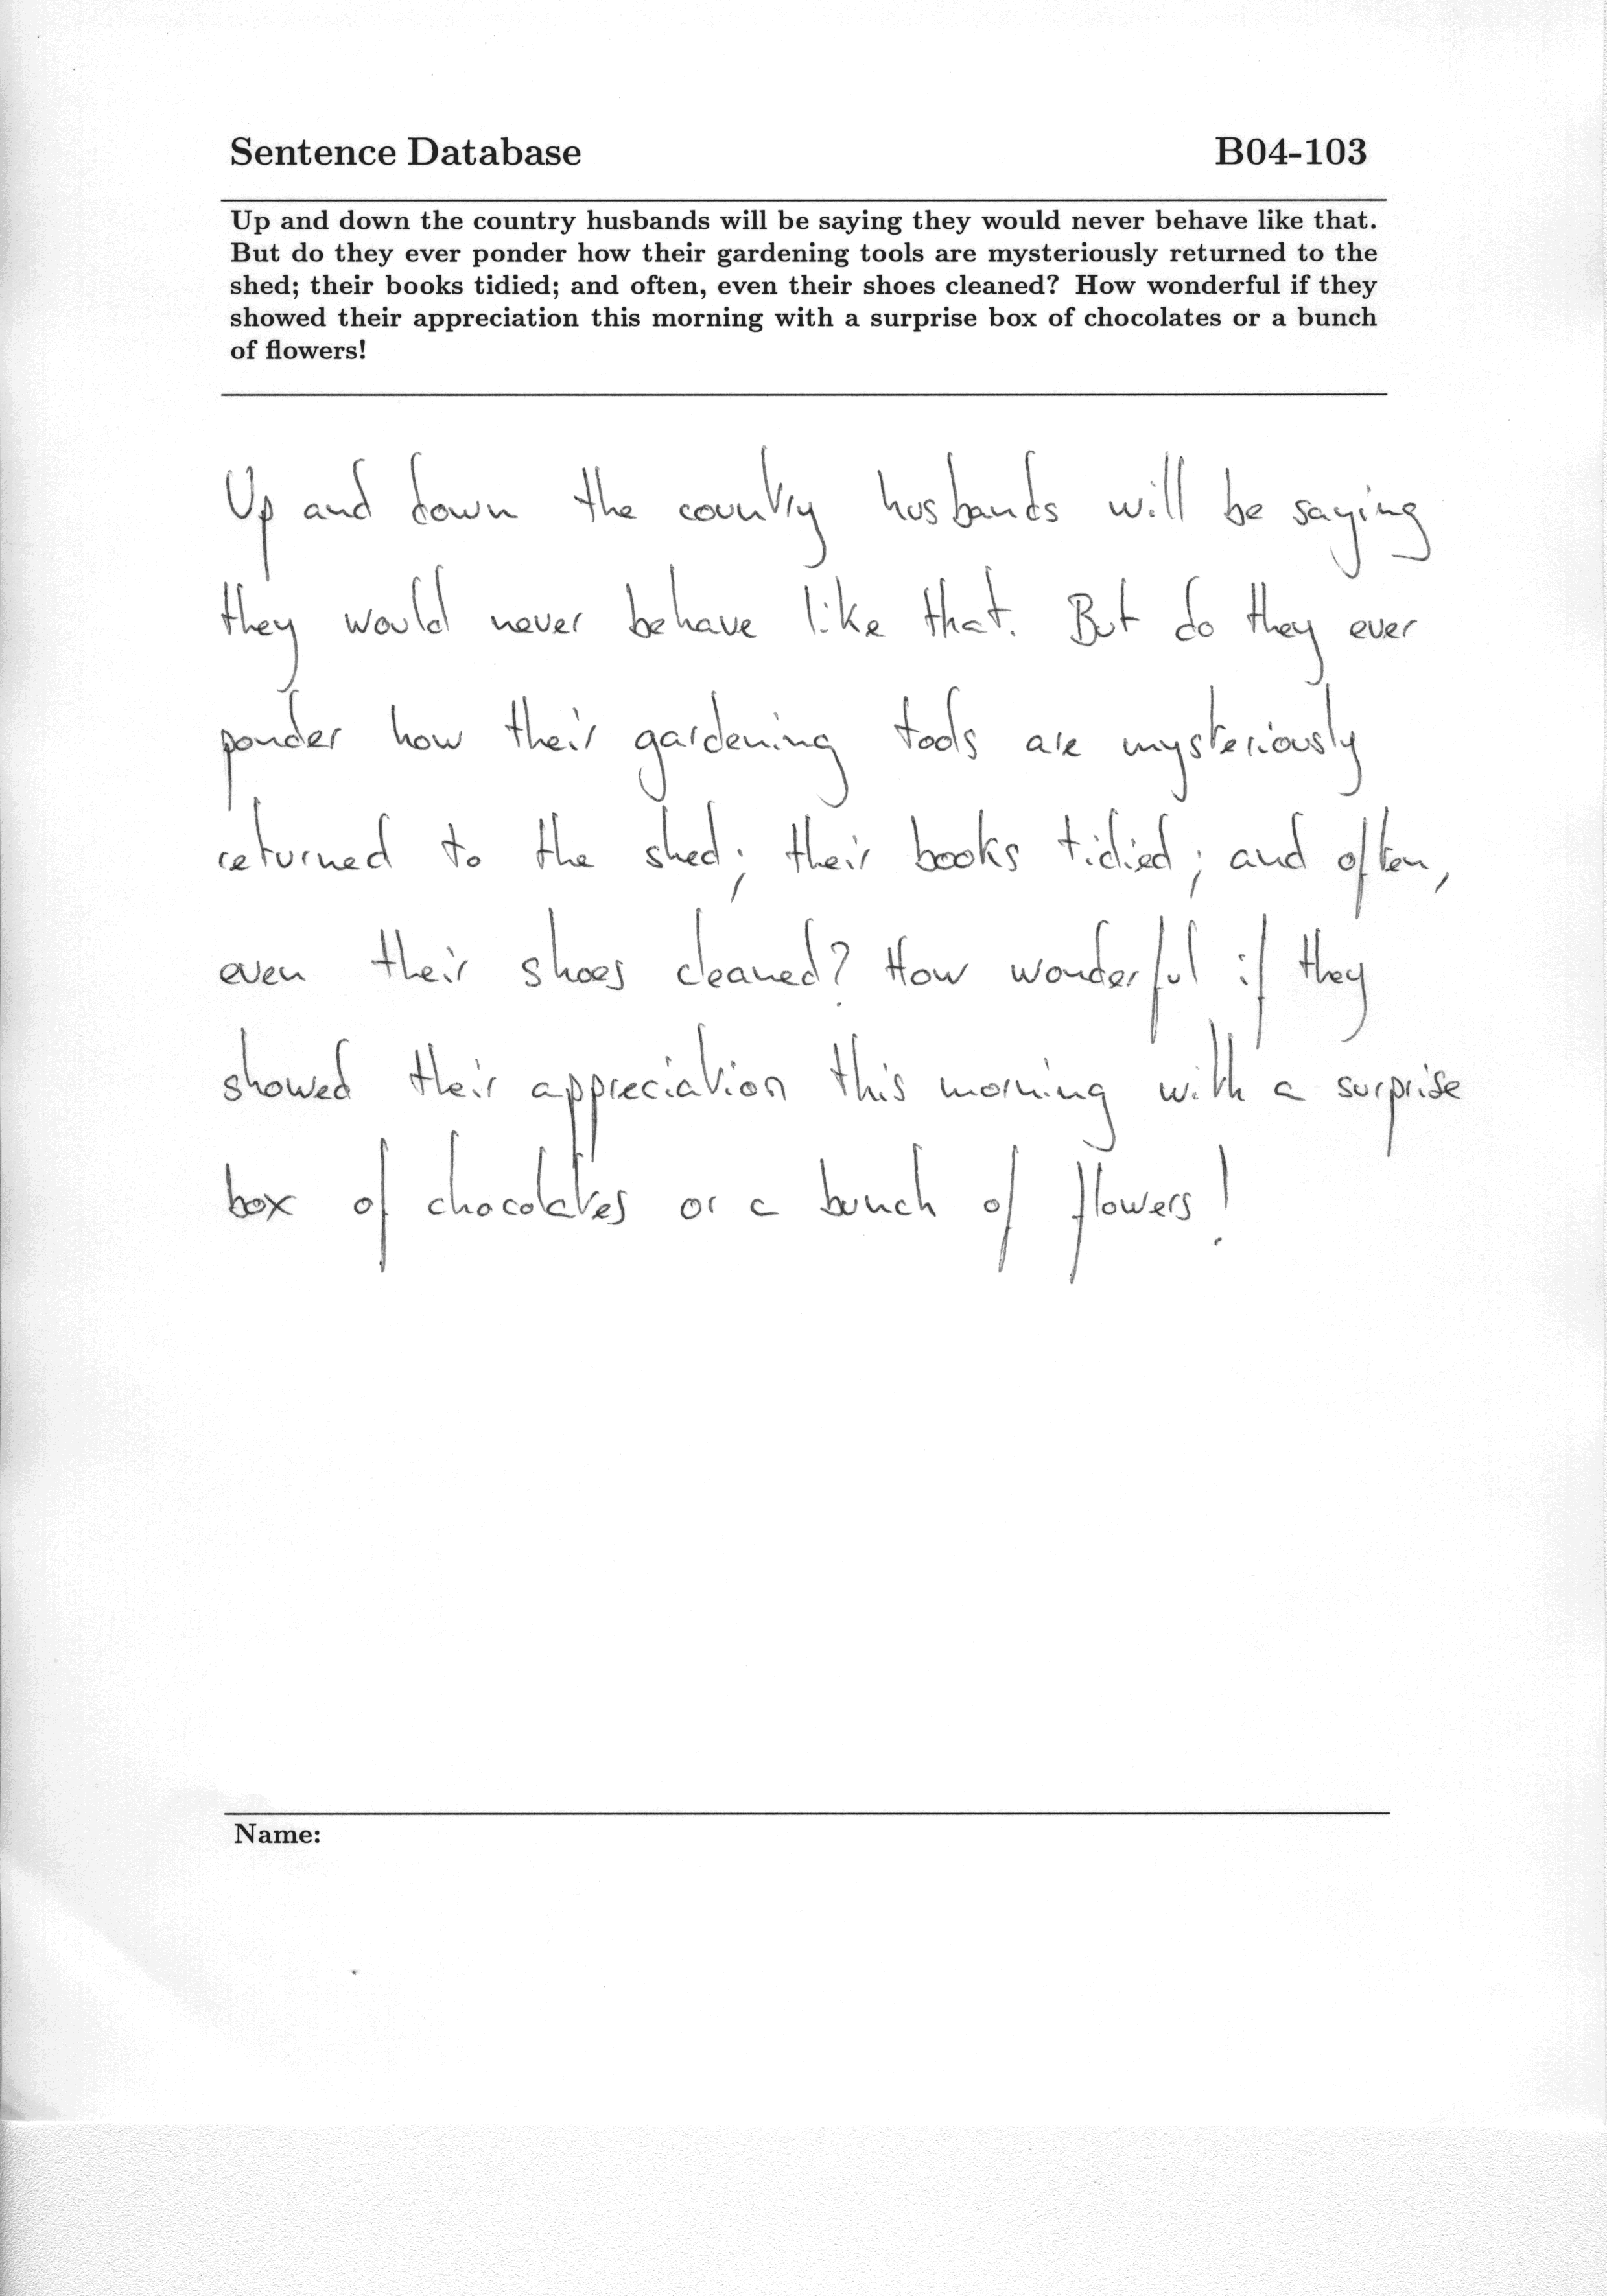 Sentence Database B04-103
Up and down the country husbands will be saying they would never behave like that.
But do they ever ponder how their gardening tools are mysteriously returned to the
shed; their books tidied; and often, even their shoes cleaned? How wonderful if they
showed their appreciation this morning with a surprise box of chocolates or a bunch
of flowers!
Up and down the country husbands will be saying
they would never behave like that. But do they ever
ponder how their gardening tools are mysteriously
returned to the shed; their books tidied; and often,
even their shoes cleaned? How wonderful if they
showed their appreciation this morning with a surprise
box of chocolates or a bunch of flowers!
Name: